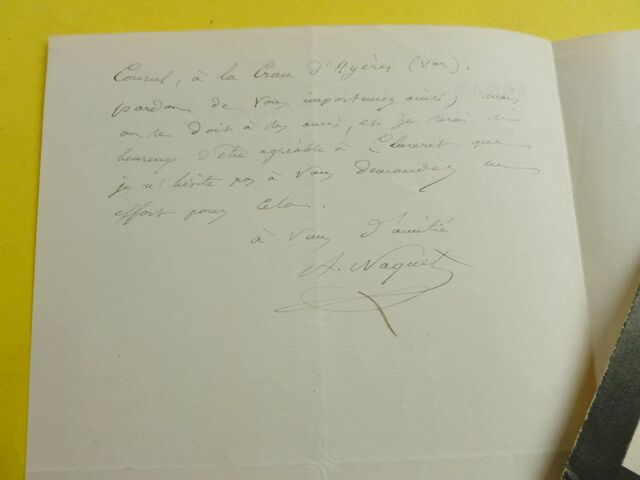 Consul, à la Crau d'Hyères (Var).
pardon de vous importuner ainsi; mais
on se doit à ses amis, et je serai si
heureux d'être agréable à Cluseret que
je n'hésite pas à vous demander un
effort pour cela.
à vous d'amitié
A. Naquet